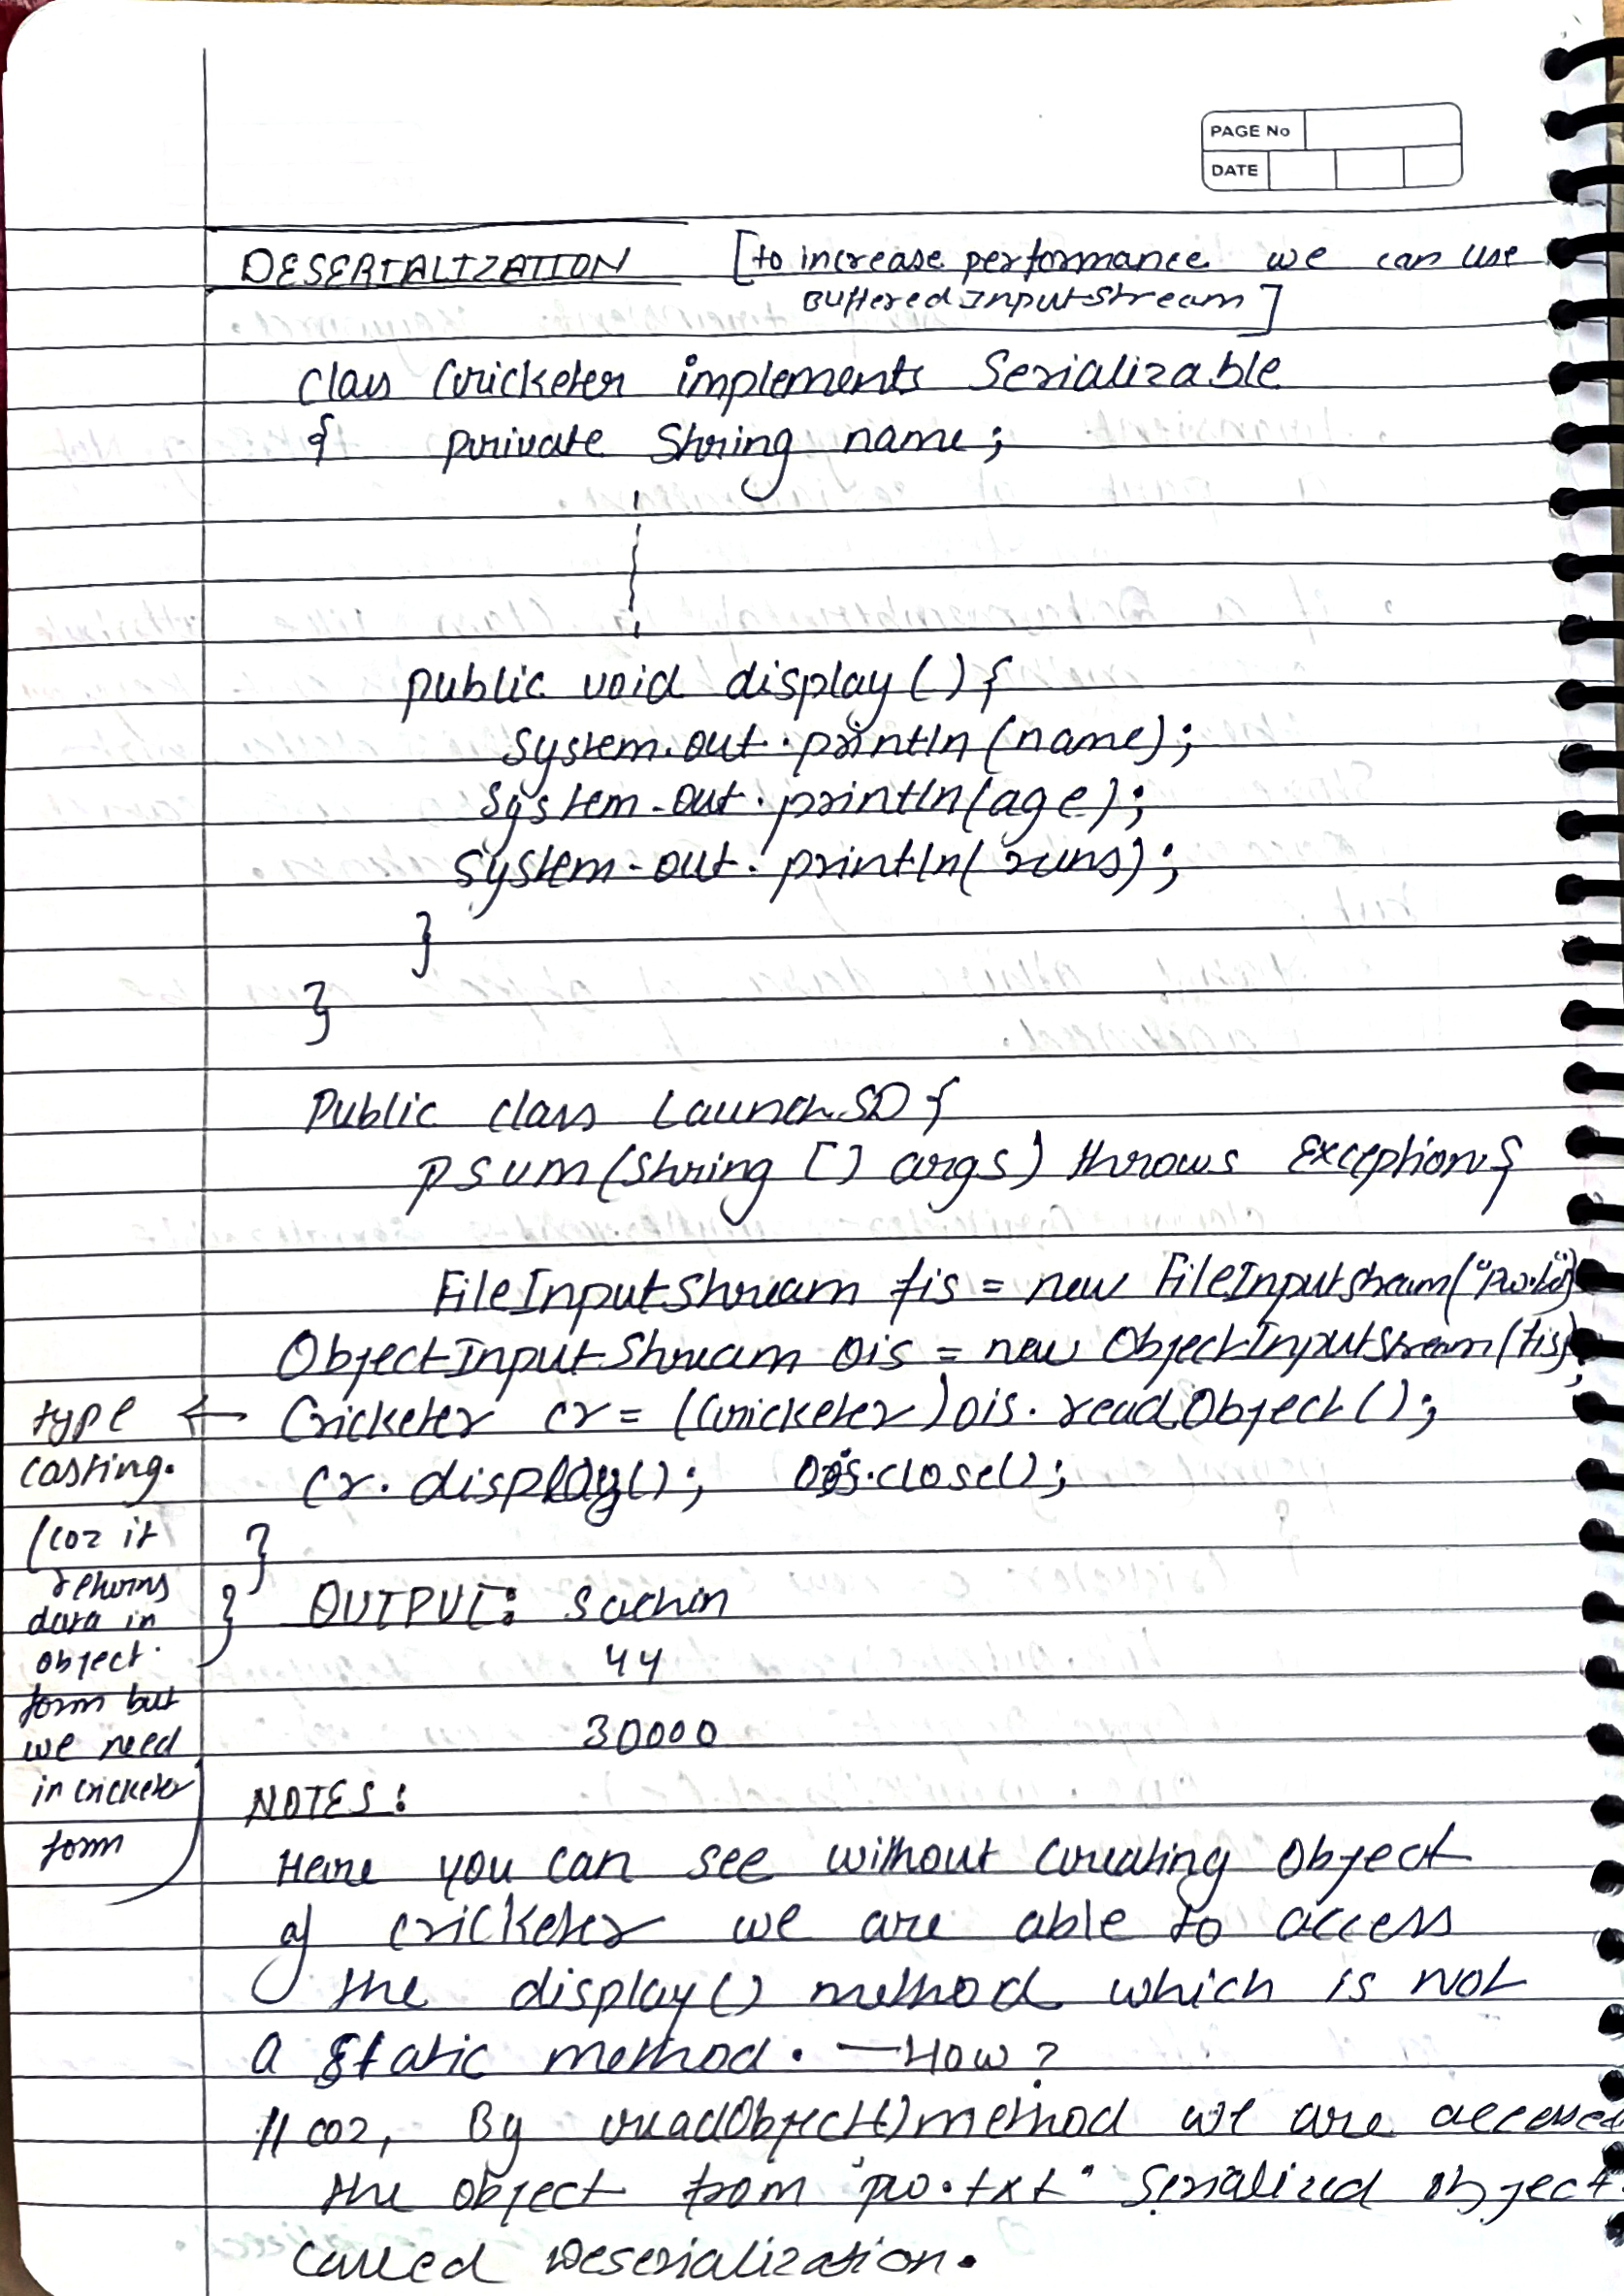 PAGE No
DATE
DESERIALIZATION [to increase performance we can use
Buffered InputStream]
class Cricketer implements Serializable
{ private String name;
public void display(){
System.out.println(name);
System.out.println(age);
System.out.println(runs);
}
}
Public class LaunchSD{
psvm(String [] args) throws Exception{
FileInputStream fis = new FileInputStream("pw.txt")
ObjectInputStream ois = new ObjectInputStream(fis);
type ← Cricketer cr = (Cricketer)ois.readObject();
casting. cr.display(); ois.close();
(coz it }
returns } OUTPUT: Sachin
data in
object 44
form but
we need 30000
in cricketer NOTES:
form) Here you can see without creating object
of cricketer we are able to access
the display() method which is not
a static method. — How?
// coz, By readObject() method we are
the object from "pw.txt" Serialized object
called Deserialization.